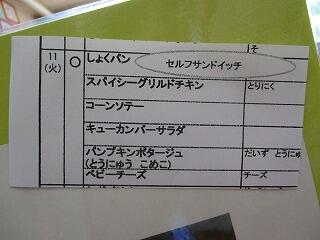 そ
11
(火)
○
しょくパン
セルフサンドイッチ
スパイシーグリルドチキン
とりにく
コーンソテー
キューカンバーサラダ
パンプキンポタージュ
(とうにゅう こめこ)
だいず とうにゅ
ベビーチーズ
チーズ